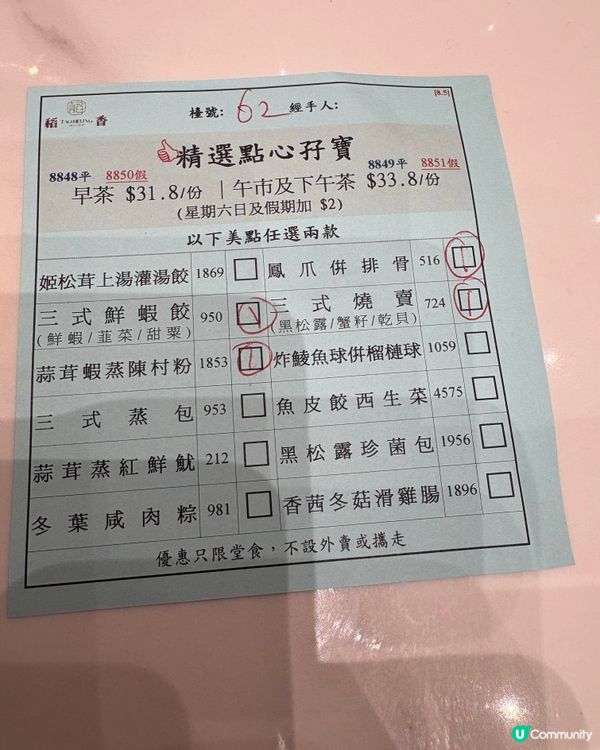 稻 TAO HEUNG 香 檯號: 62 經手人: [8.5]
精選點心孖寶
8848平 8850假 8849平 8851假
早茶 $31.8/份 | 午市及下午茶 $33.8/份
(星期六日及假期加 $2)
以下美點任選兩款
姬松茸上湯灌湯餃 1869 鳳爪併排骨 516 1
三式鮮蝦餃 950 1 三式燒賣 724 1
(鮮蝦/韮菜/甜粟) (黑松露/蟹籽/乾貝)
蒜茸蝦蒸陳村粉 1853 1 炸鯪魚球併榴槤球 1059
三式蒸包 953 魚皮餃西生菜 4575
蒜茸蒸紅鮮魷 212 黑松露珍菌包 1956
冬葉咸肉粽 981 香茜冬菇滑雞腸 1896
優惠只限堂食，不設外賣或攜走
U Community